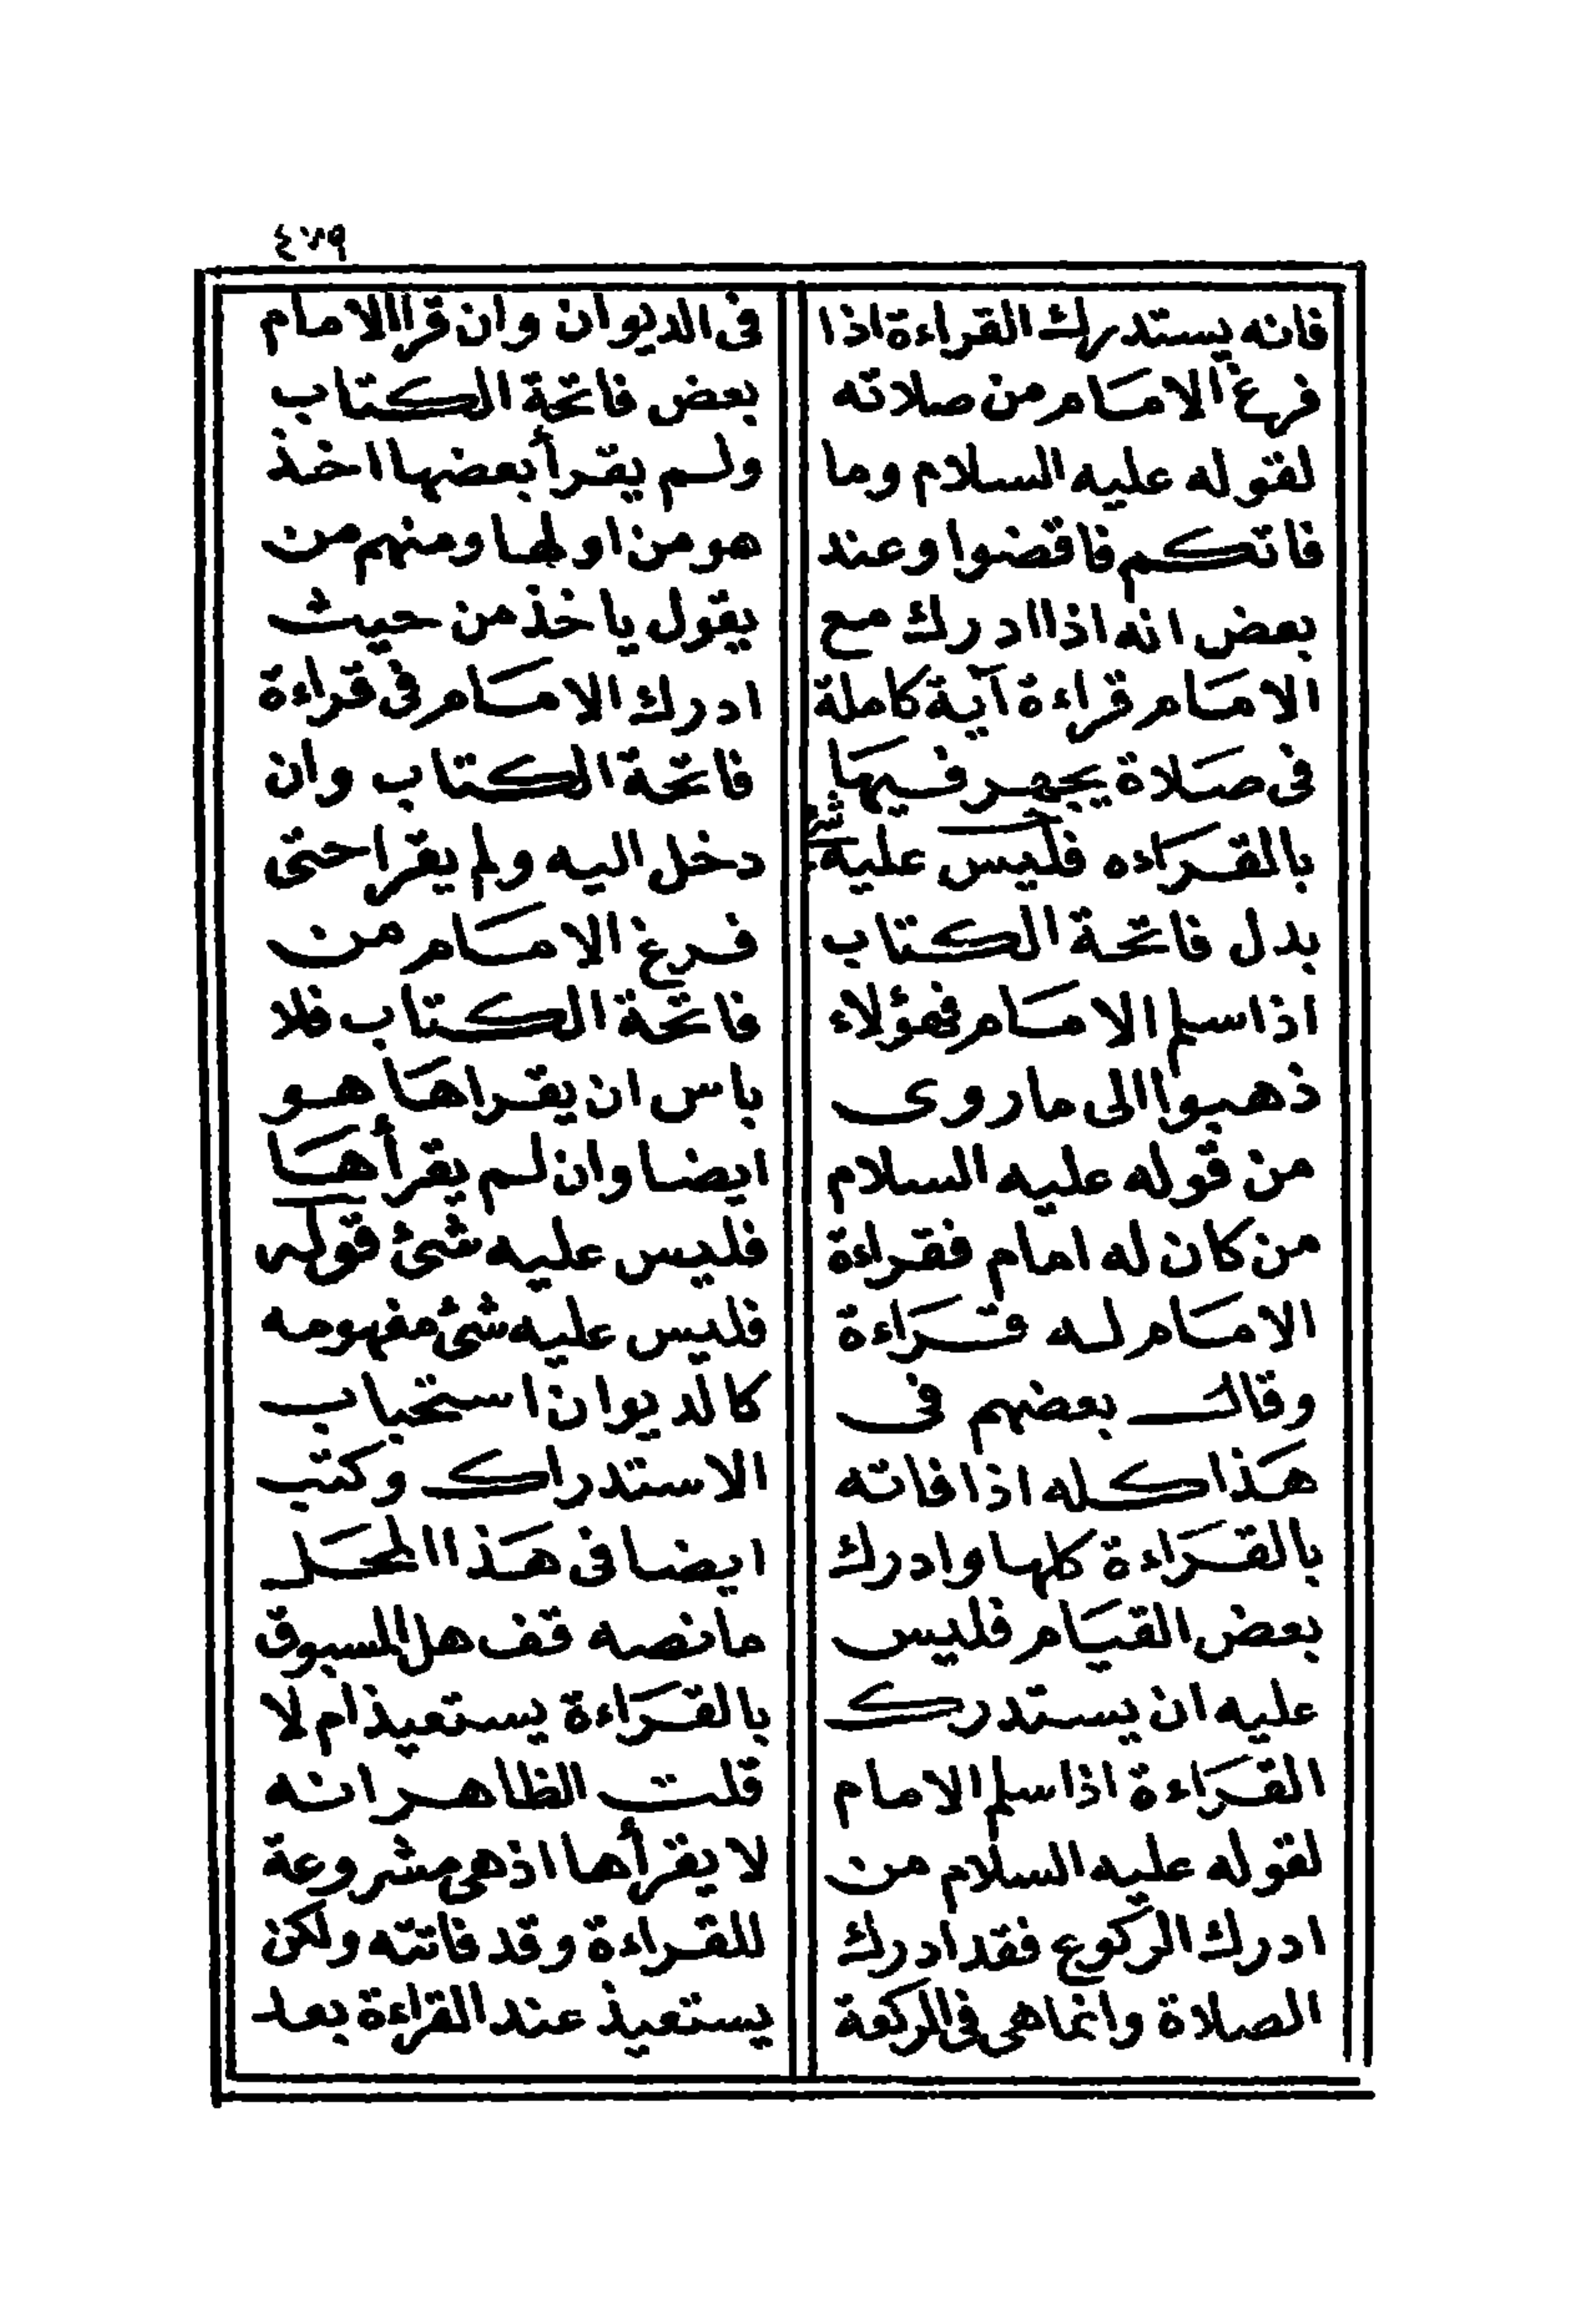 ٤٧٩
فانه يستدرك القراءة اذا
فرغ الامام من صلاته
لقوله عليه السلام وما
فاتكم فاقضوا وعند
بعض انه اذا ادرك مع
الامام قراءة آية كاملة
فى صلاة يجهر فيها
بالقراءه فليس عليه شئ
بدل فاتحة الكتاب
اذا سلم الامام فهؤلاء
ذهبوا الى ما روى
من قوله عليه السلام
من كان له امام فقراءة
الامام له قراءة
وقال بعضهم فى
هذا كله اذا فاته
بالقراءة كلها وادرك
بعض القيام فليس
عليه ان يستدرك
القراءة اذا سلم الامام
لقوله عليه السلام من
ادرك الركوع فقد ادرك
الصلاة وانما هى فى الركعة
فى الديوان وان قرا الامام
بعض فاتحة الكتاب
ولم يقرأ بعضها اخذ
هو من اولها ومنهم من
يقول ياخذ من حيث
ادرك الامام فى قراءة
فاتحة الكتاب وان
دخل اليه ولم يقرا حتى
فرغ الامام من
فاتحة الكتاب فلا
باس ان يقراها هو
ايضا وان لم يقرأها
فليس عليه شئ قوله
فليس عليه شئ مفهومه
كالديوان استحباب
الاستدراك وكتب
ايضا فى هذا المحل
ما نصه قف هل المسبوق
بالقراءة يستعيذ ام لا
قلت الظاهر انه
لا يقرأها اذ هى مشروعة
للقراءة وقد فاتته ولكن
يستعيذ عند القراءة بعد